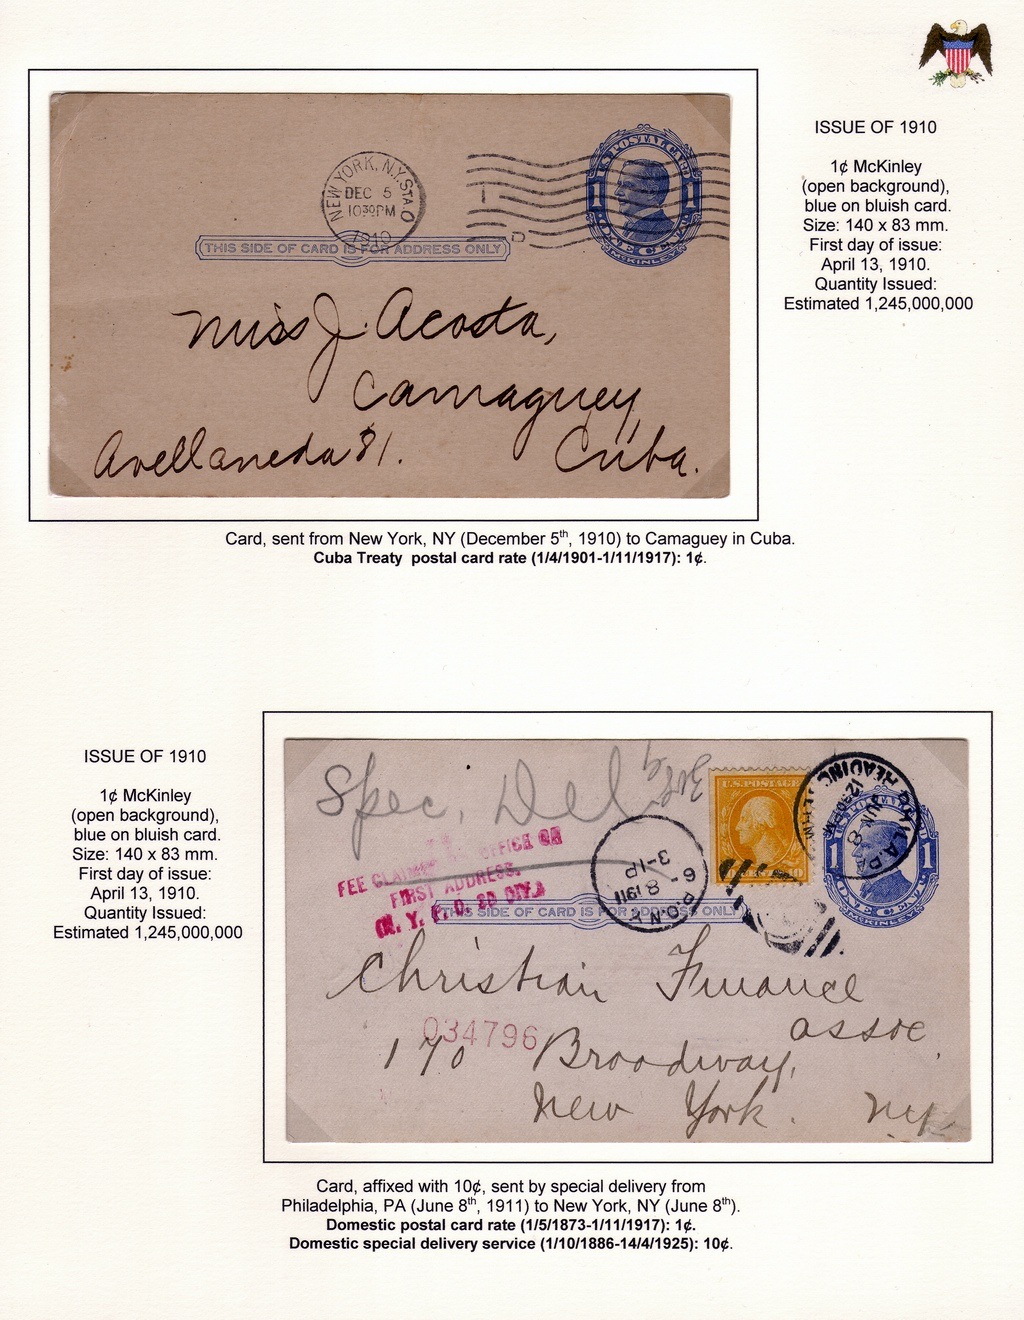 ISSUE OF 1910
1¢ McKinley
(open background),
blue on bluish card.
Size: 140 x 83 mm.
First day of issue:
April 13, 1910.
Quantity Issued:
Estimated 1,245,000,000
NEW YORK, N.Y. STA. O
DEC 5
1030PM
1910
U.S. POSTAL CARD
1 1
ONE CENT
McKINLEY
THIS SIDE OF CARD IS FOR ADDRESS ONLY
D
Miss J. Acosta,
Camaguey,
Avellaneda 81. Cuba.
Card, sent from New York, NY (December 5th, 1910) to Camaguey in Cuba.
Cuba Treaty postal card rate (1/4/1901-1/11/1917): 1¢.
ISSUE OF 1910
1¢ McKinley
(open background),
blue on bluish card.
Size: 140 x 83 mm.
First day of issue:
April 13, 1910.
Quantity Issued:
Estimated 1,245,000,000
Spec. Del
U.S. POSTAGE
10
PHILA. PA.
JUN 8
1230PM
READING TERM
1 1
ONE CENT
McKINLEY
FEE CLAIMED OFFICE OR
FIRST ADDRESS.
(N. Y. P. O. 2D DIV.)
P.O.N.Y.
6-8 1911
3-1P
THIS SIDE OF CARD IS FOR ADDRESS ONLY
Christian Finance
assoc.
034796
170 Broadway,
New York. NY
Card, affixed with 10¢, sent by special delivery from
Philadelphia, PA (June 8th, 1911) to New York, NY (June 8th).
Domestic postal card rate (1/5/1873-1/11/1917): 1¢.
Domestic special delivery service (1/10/1886-14/4/1925): 10¢.